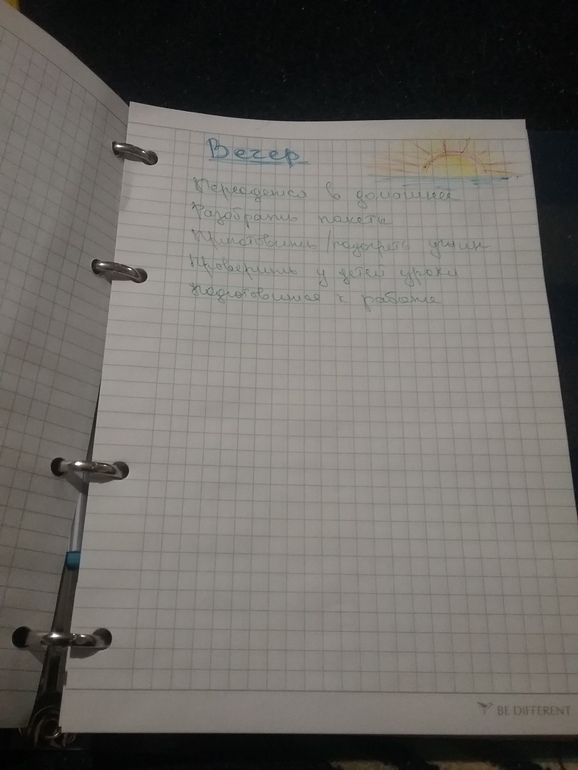 Вечер
Переодется в домашнее
Разобрать пакеты
Приготовить/разогреть ужин
Проверить у детей уроки
Подготовится к работе
BE DIFFERENT